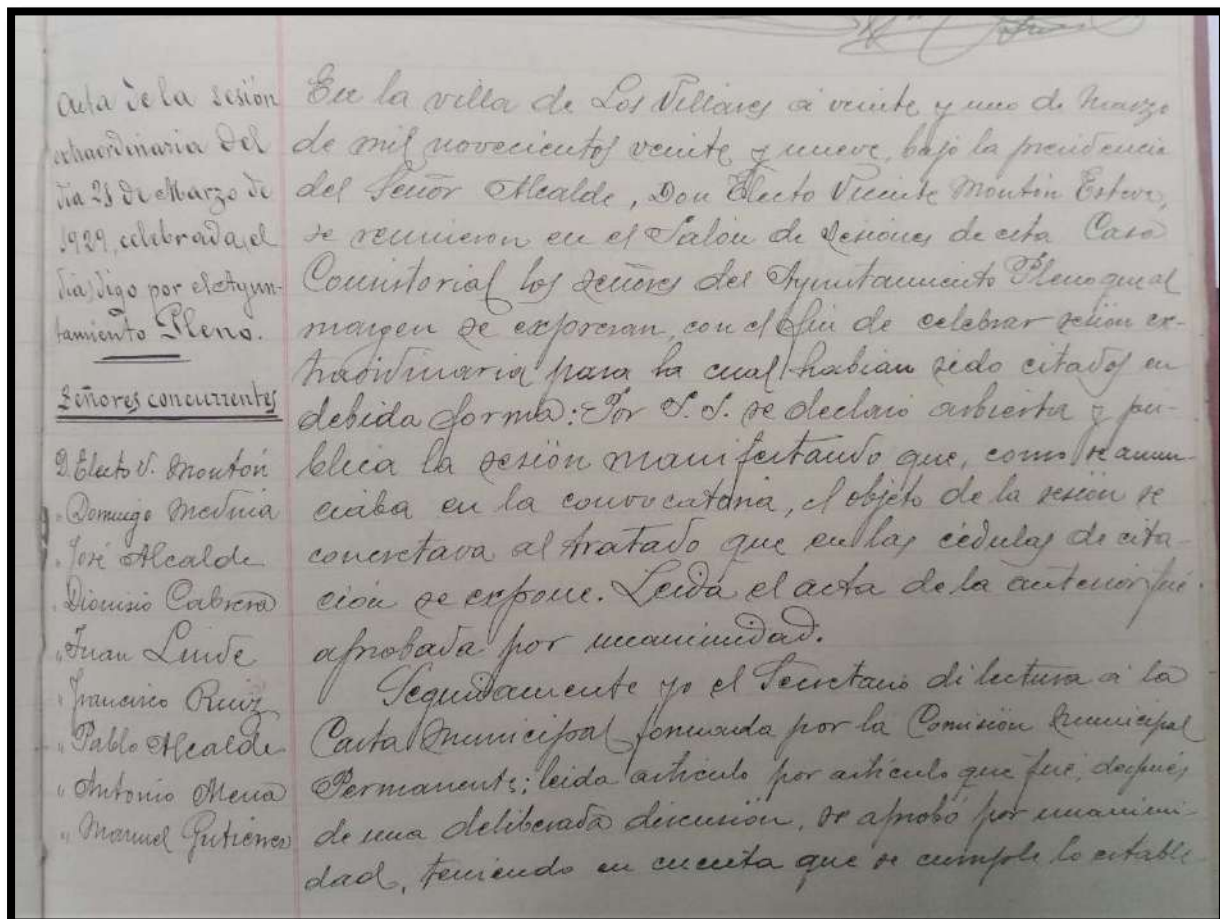 Acta de la sesión
extraordinaria del
día 21 de Marzo de
1929, celebrada, el
día, digo por el Ayun-
tamiento Pleno.
Señores concurrentes
D. Electo V. Montón
" Domingo Medina
" José Alcalde
" Dionisio Cabrera
" Juan Linde
" Francisco Ruiz
" Pablo Alcalde
" Antonio Mena
" Manuel Gutiérrez
En la villa de Los Villares á veinte y uno de Marzo
de mil novecientos veinte y nueve, bajo la presidencia
del Señor Alcalde, Don Electo Vicente Montón Esteve,
se reunieron en el Salón de Sesiones de esta Casa
Consistorial los señores del Ayuntamiento Pleno que al
margen se expresan, con el fin de celebrar sesión ex-
traordinaria para la cual habían sido citados en
debida forma: Por S. S. se declaró abierta y pu-
blica la sesión manifestando que, como se anun-
ciaba en la convocatoria, el objeto de la sesión se
concretava al tratado que en las cédulas de cita-
ción se expone. Leida el acta de la anterior fué
aprobada por unanimidad.
Seguidamente yo el Secretario di lectura á la
Carta Municipal formada por la Comisión Municipal
Permanente; leida artículo por artículo que fué, después
de una deliberada discusión, se aprobó por unanimi-
dad, teniendo en cuenta que se cumple lo estable